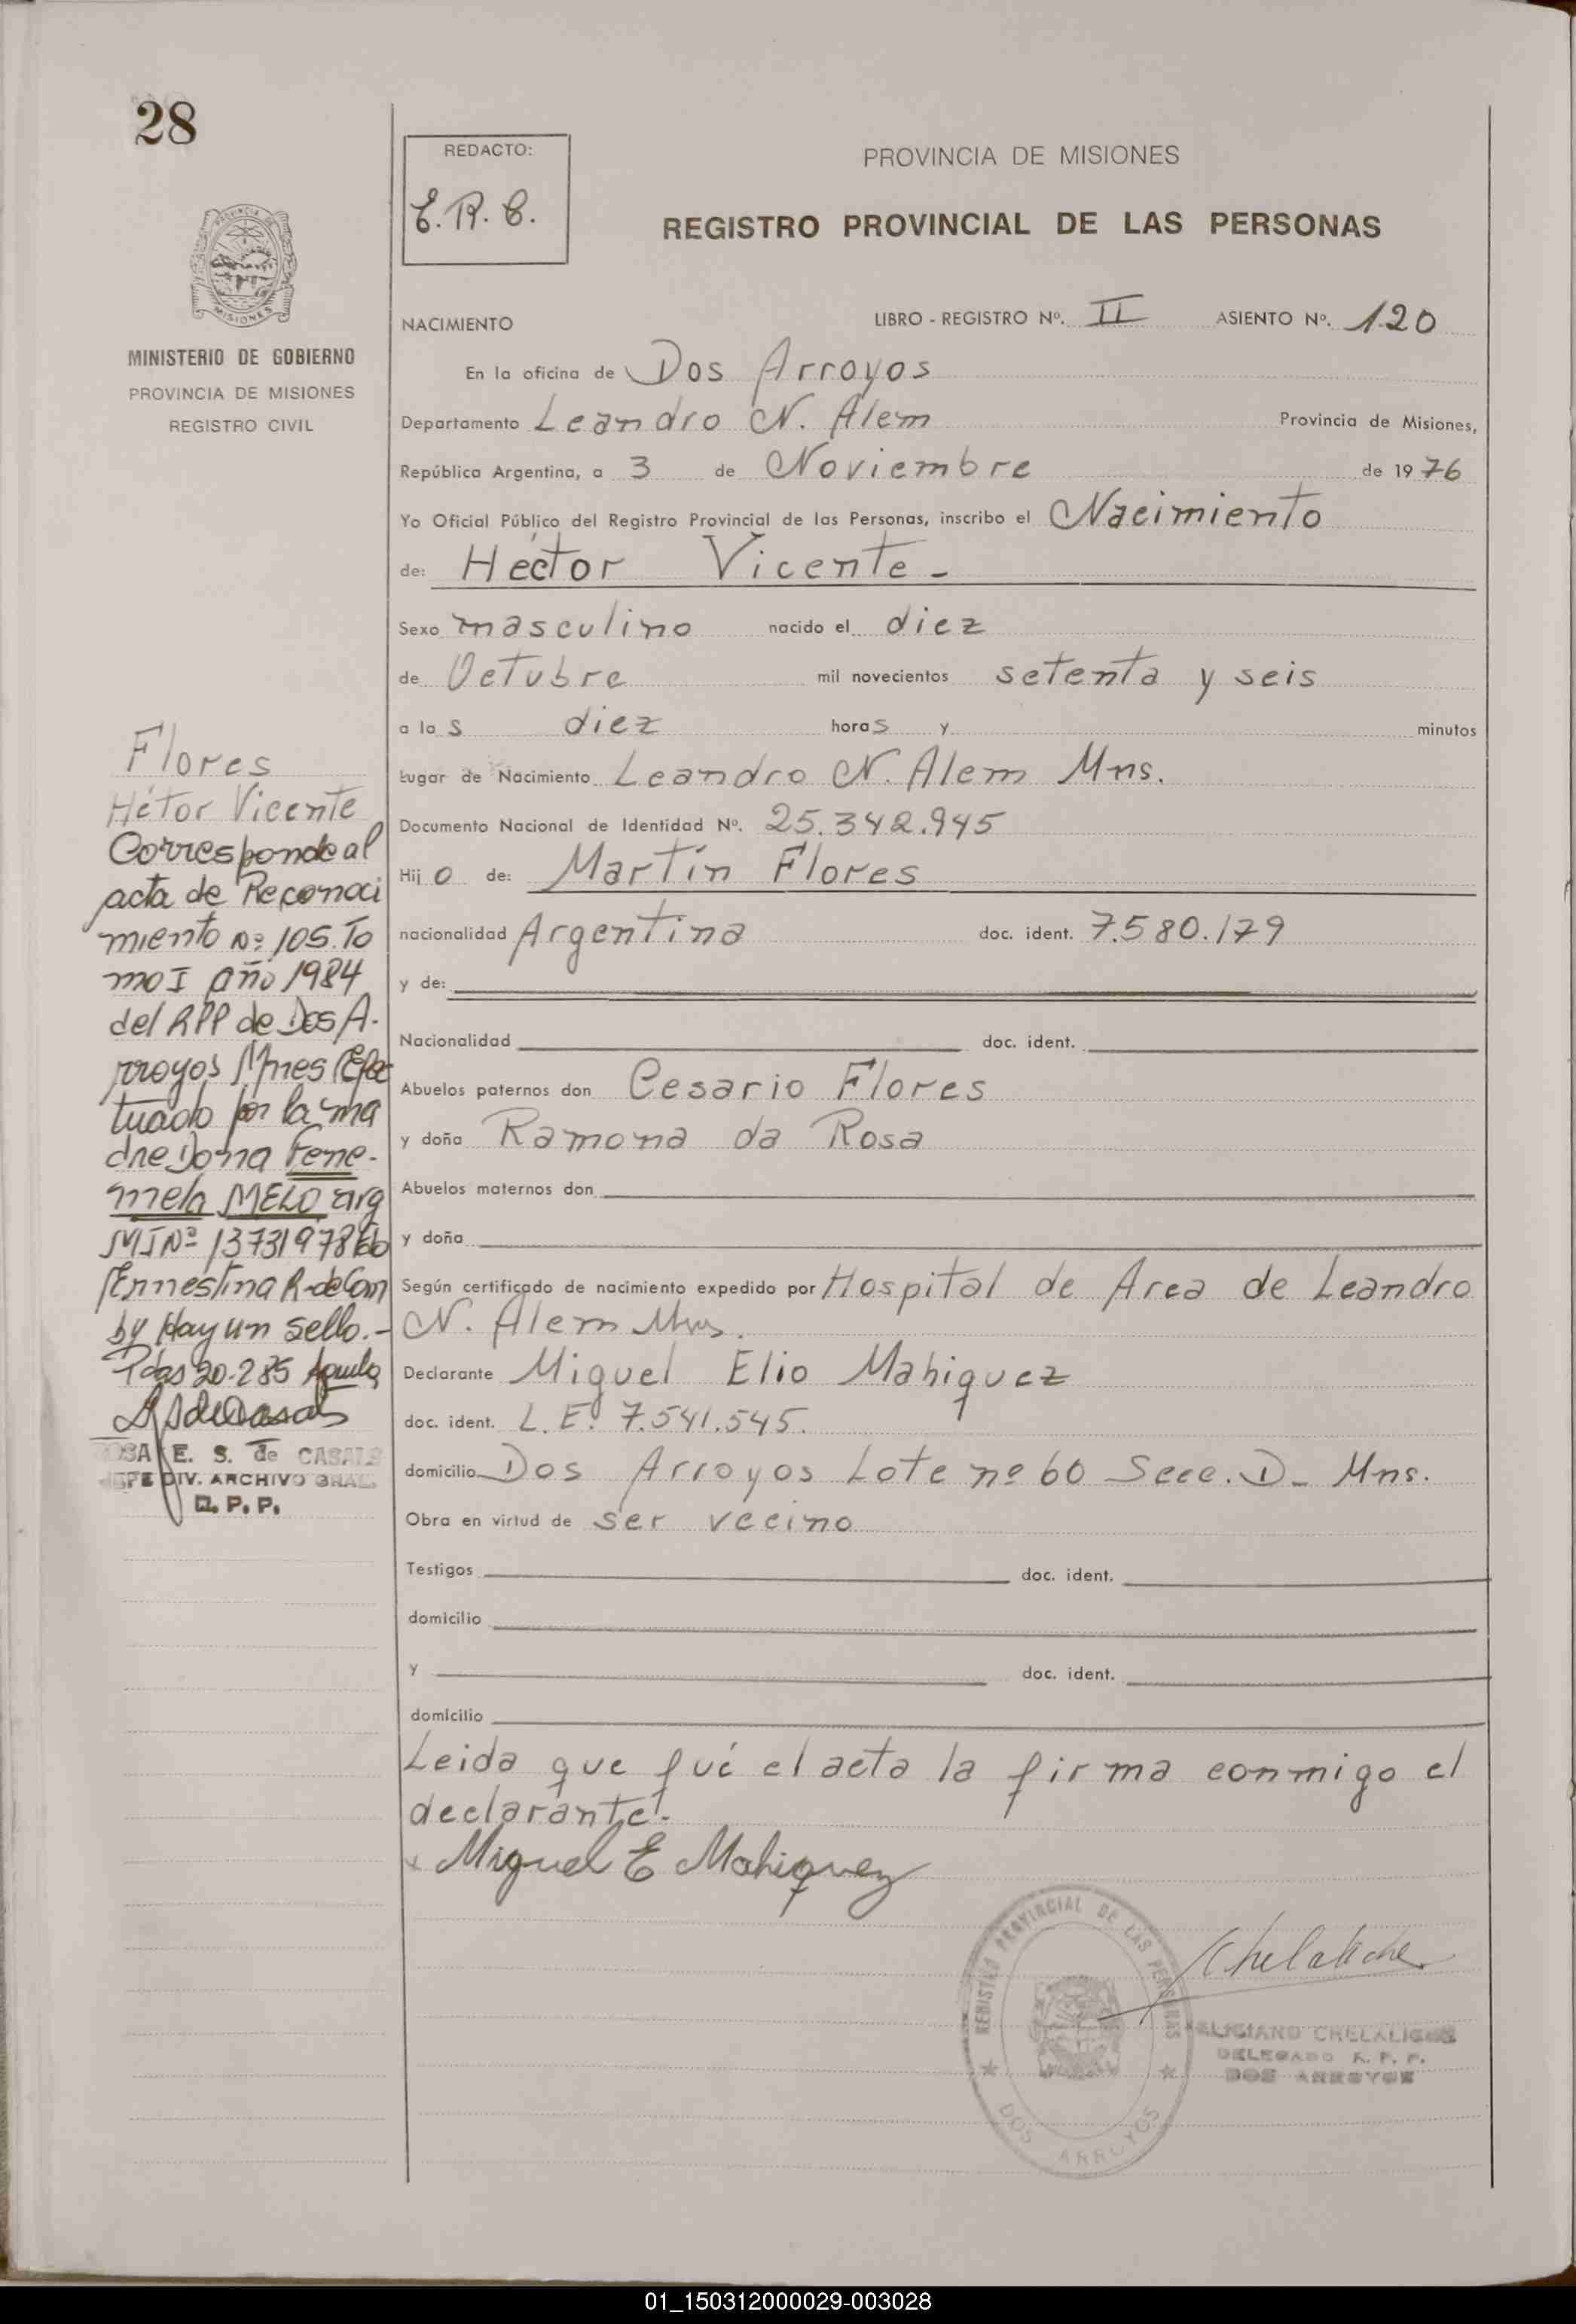 28
MINISTERIO DE GOBIERNO
PROVINCIA DE MISIONES
REGISTRO CIVIL
REDACTO:
E.R.C.
PROVINCIA DE MISIONES
REGISTRO PROVINCIAL DE LAS PERSONAS
NACIMIENTO LIBRO - REGISTRO Nº. II ASIENTO Nº. 120
En la oficina de Dos Arroyos
Departamento Leandro N. Alem Provincia de Misiones,
República Argentina, a 3 de Noviembre de 1976
Yo Oficial Público del Registro Provincial de las Personas, inscribo el Nacimiento
de: Héctor Vicente.-
Sexo masculino nacido el diez
de Octubre mil novecientos setenta y seis
a las diez horas y minutos
Lugar de Nacimiento Leandro N. Alem Mns.
Documento Nacional de Identidad Nº. 25.342.945
Hijo de: Martín Flores
nacionalidad Argentina doc. ident. 7.580.179
y de:
Nacionalidad doc. ident.
Abuelos paternos don Cesario Flores
y doña Ramona da Rosa
Abuelos maternos don
y doña
Según certificado de nacimiento expedido por Hospital de Area de Leandro
N. Alem Mns.
Declarante Miguel Elio Mahiquez
doc. ident. L.E. 7.541.545.
domicilio Dos Arroyos Lote nº 60 Secc. D- Mns.
Obra en virtud de ser vecino
Testigos doc. ident.
domicilio
y doc. ident.
domicilio
Leida que fué el acta la firma conmigo el
declarante.-
x Miguel E Mahiquez
Flores
Héctor Vicente
Corresponde al
acta de Reconoci
miento Nº 105. To
mo I año 1984
del RPP de Dos A-
rroyos Mnes (Efec
tuado por la ma
dre Doña Fene-
mela MELO arg
MI Nº 13731978
Ernestina R. de Com
by Hay un sello.-
Pdas 20-2-85
ROSA E. S. de CASALS
JEFE DIV. ARCHIVO GRAL.
R. P. P.
REGISTRO PROVINCIAL DE LAS PERSONAS
DOS ARROYOS
CHELALICHE
DELEGADO R. P. P.
DOS ARROYOS
01_150312000029-003028